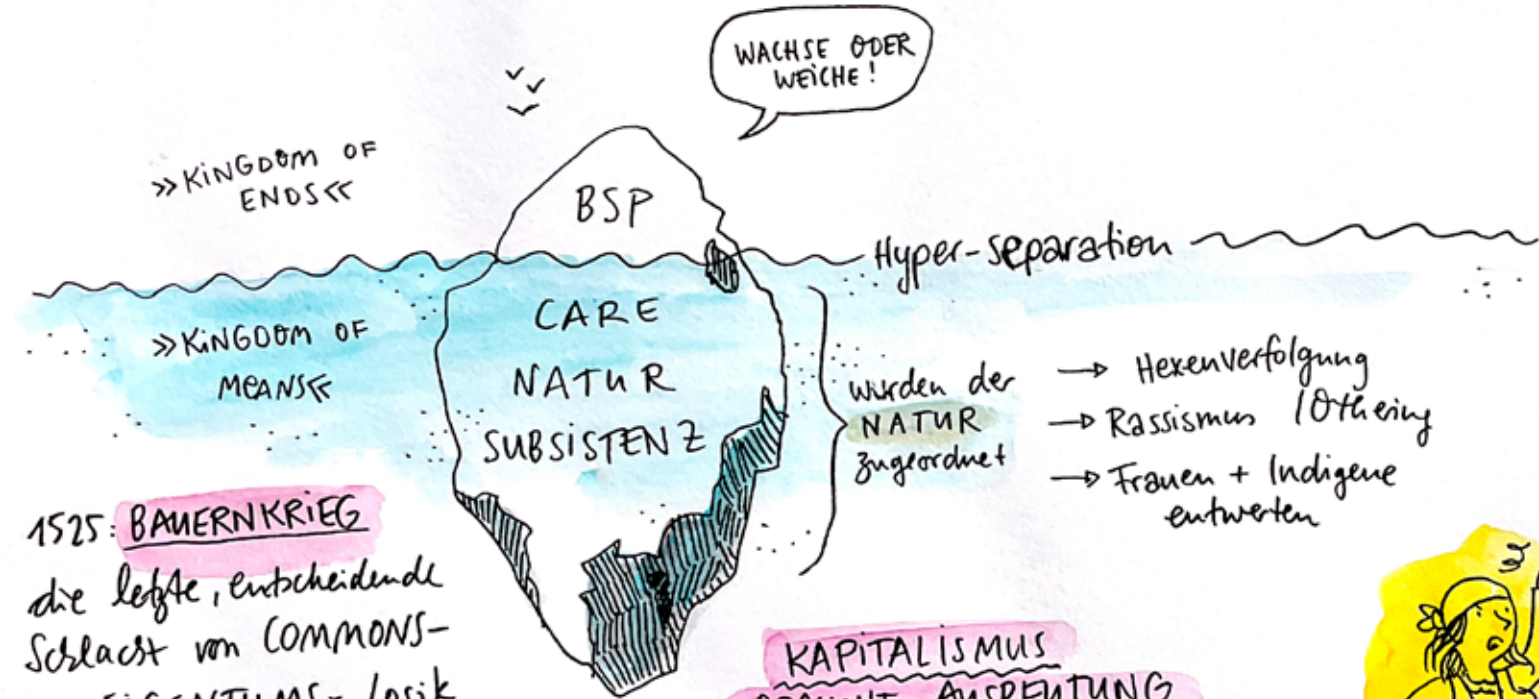 WACHSE ODER
WEICHE!
»KINGDOM OF
ENDS«
BSP
Hyper-Separation
»KINGDOM OF
MEANS«
CARE
NATUR
SUBSISTENZ
wurden der
NATUR
zugeordnet
→ Hexenverfolgung
→ Rassismus / Othering
→ Frauen + Indigene
entwerten
1525: BAUERNKRIEG
die letzte, entscheidende
Schlacht von COMMONS-
EIGENTUMS-Logik
KAPITALISMUS
BRAUCHT AUSBEUTUNG